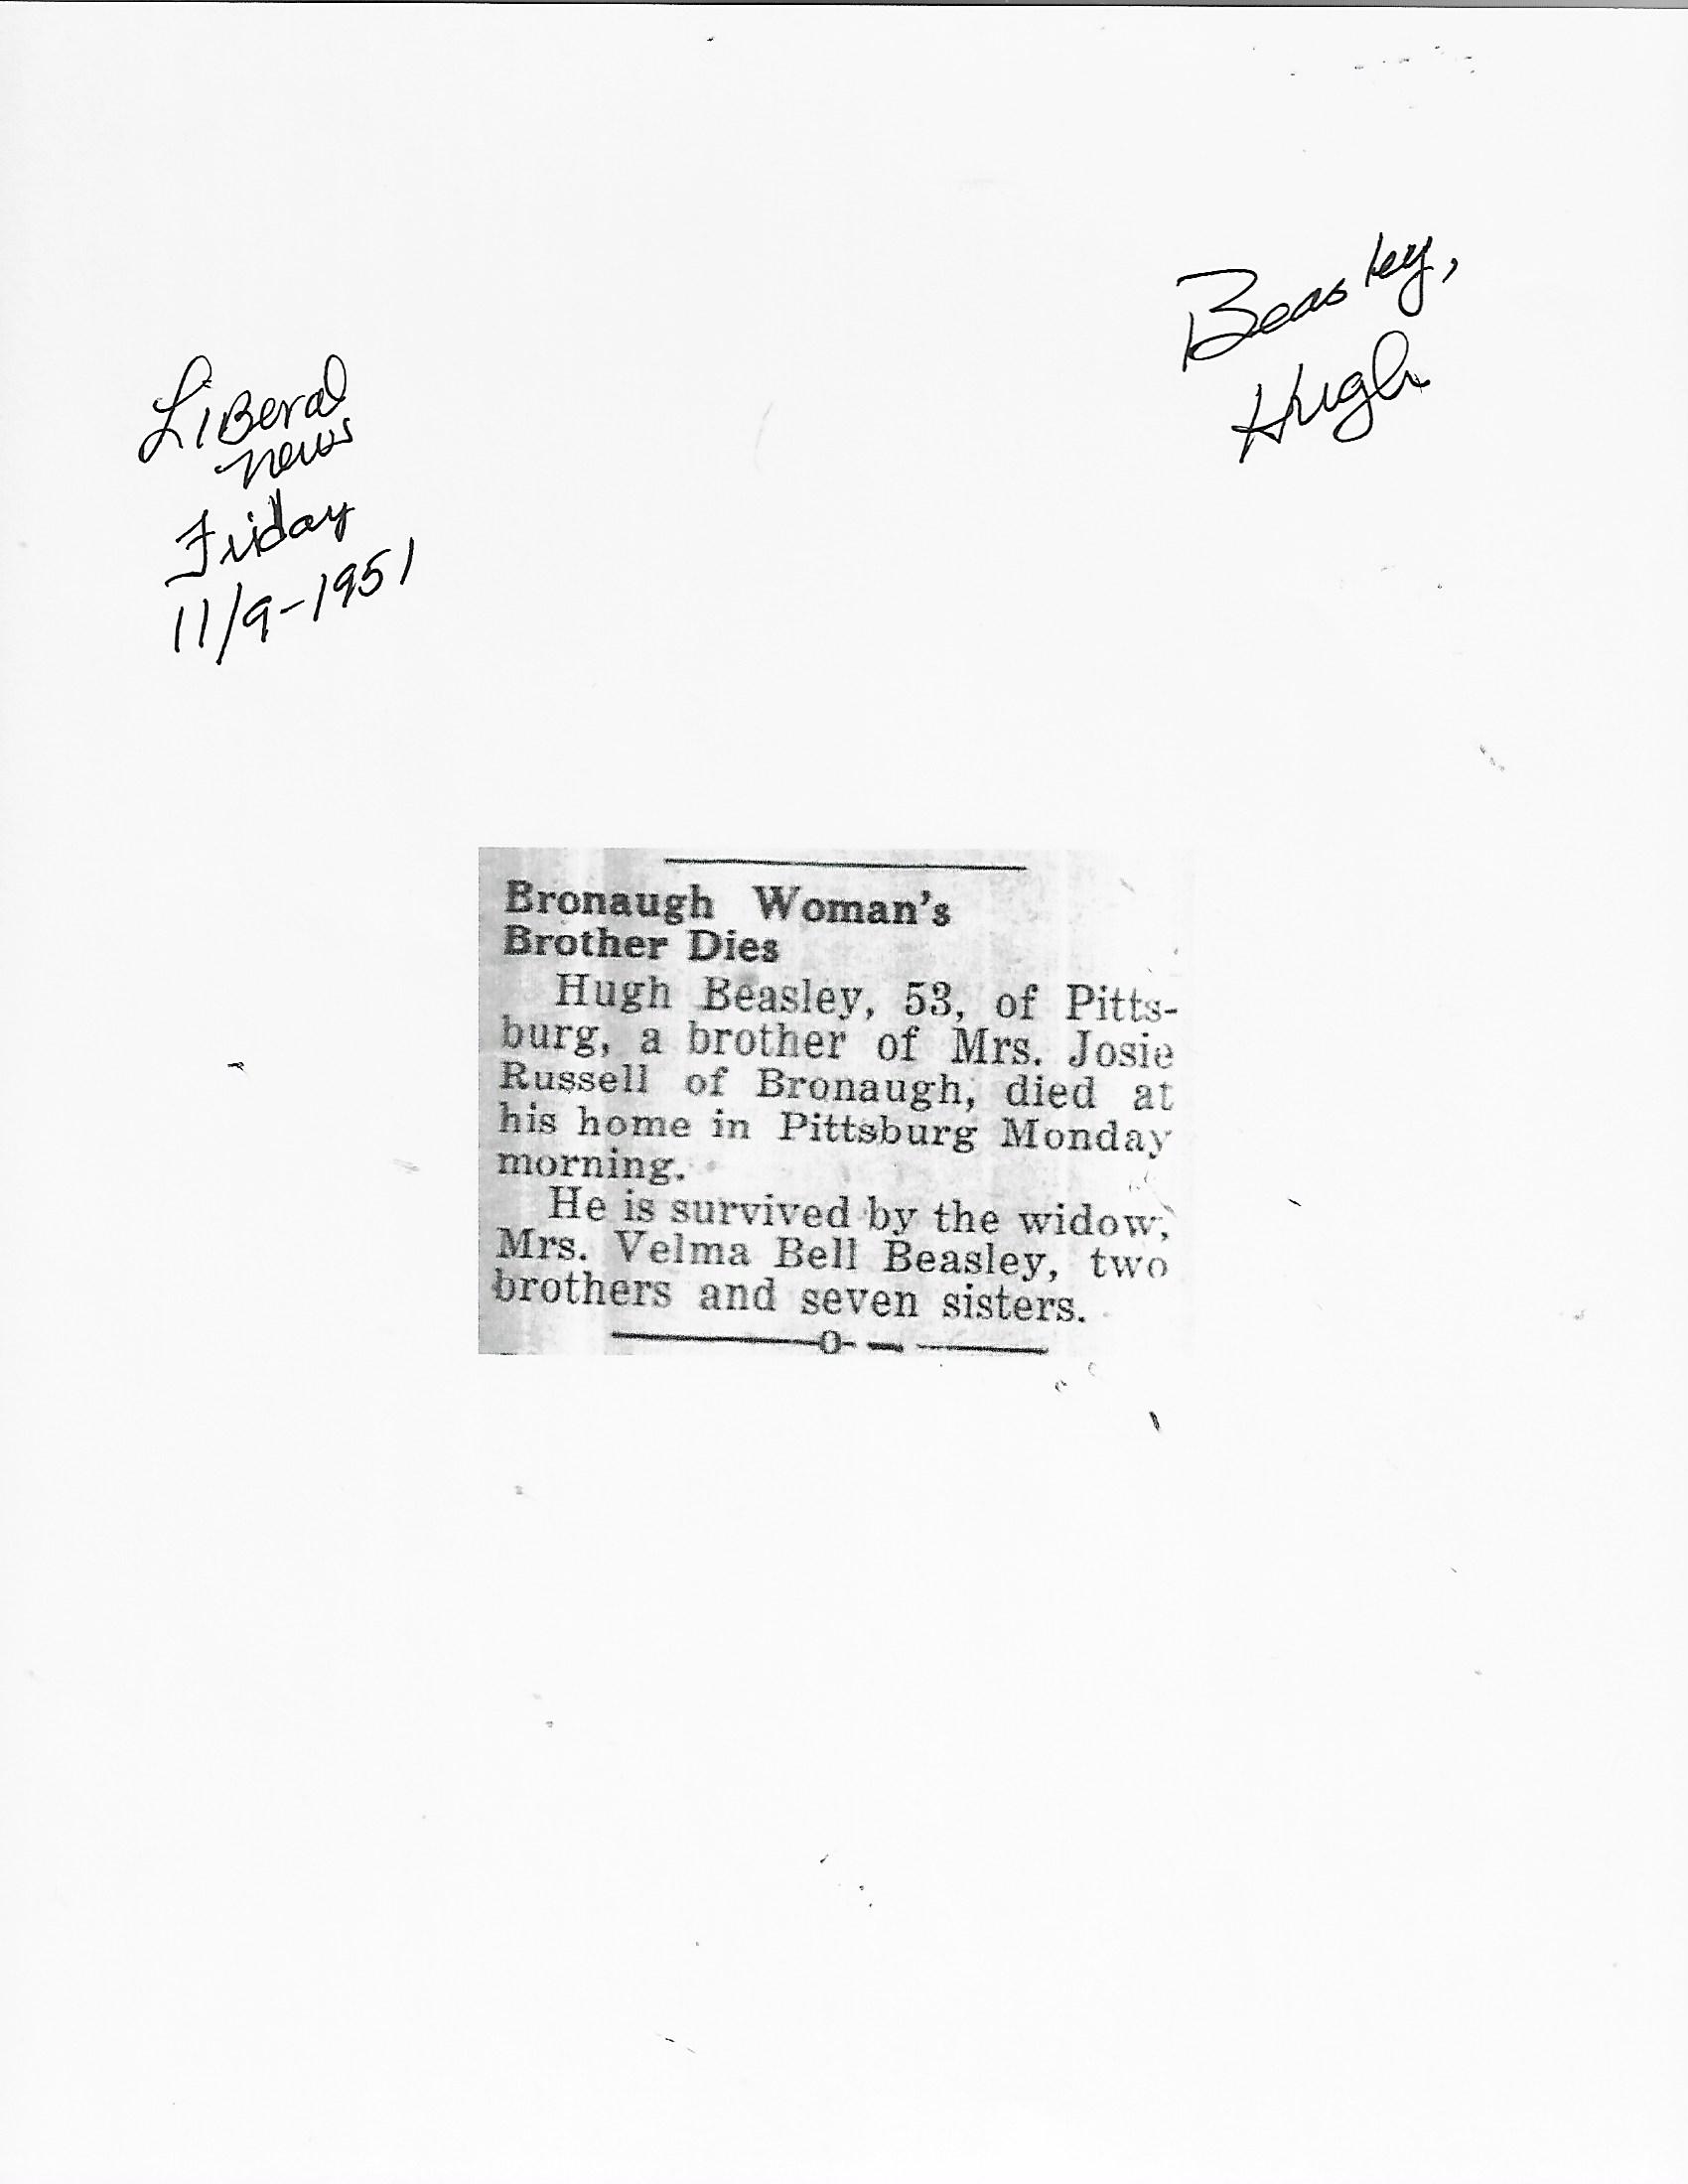 Beasley,
Hugh
LiBeral
news
Friday
11/9-1951
Bronaugh Woman's
Brother Dies
Hugh Beasley, 53, of Pitts-
burg, a brother of Mrs. Josie
Russell of Bronaugh, died at
his home in Pittsburg Monday
morning.
He is survived by the widow,
Mrs. Velma Bell Beasley, two
brothers and seven sisters.
O